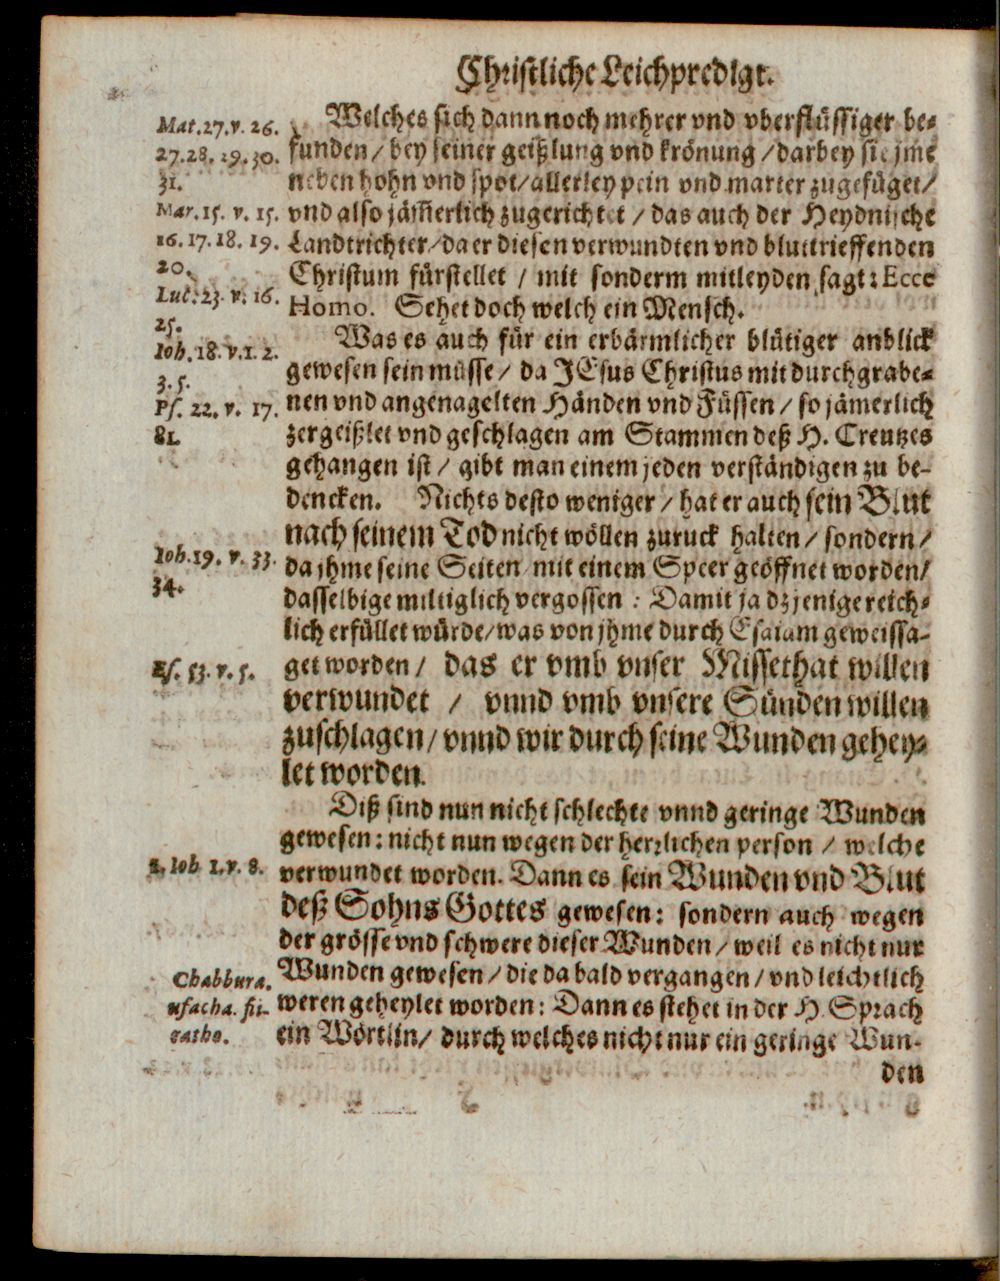 Christliche Leichpredigt.
Mat. 27. v. 26.
27. 28. 29. 30.
31.
Mar. 15. v. 15.
16. 17. 18. 19.
20.
Luc. 23. v. 16.
25.
Ioh. 18. v. 1. 2.
3. 5.
Ps. 22. v. 17.
81.
Welches sich dann noch mehrer vnd vberflüssiger be-
funden / bey seiner geißlung vnd krönung / darbey sie jme
neben hohn vnd spot / allerley pein vnd marter zugefüget /
vnd also jäm̃erlich zugerichtet / das auch der Heydnische
Landtrichter / da er diesen verwundten vnd bluttrieffenden
Christum fürstellet / mit sonderm mitleyden sagt: Ecce
Homo. Sehet doch welch ein Mensch.
Was es auch für ein erbärmlicher blütiger anblick
gewesen sein müsse / da JEsus Christus mit durchgrabe-
nen vnd angenagelten Händen vnd Füssen / so jämerlich
zergeißlet vnd geschlagen am Stammen deß H. Creutzes
gehangen ist / gibt man einem jeden verständigen zu be-
dencken. Nichts desto weniger / hat er auch sein Blut
nach seinem Tod nicht wöllen zuruck halten / sondern /
Ioh. 19. v. 33.
34.
da jhme seine Seiten mit einem Speer geöffnet worden /
dasselbige miltiglich vergossen : Damit ja dz jenige reich-
lich erfüllet würde / was von jhme durch Esaiam geweissa-
Es. 53. v. 5.
get worden / das er vmb vnser Missethat willen
verwundet / vnnd vmb vnsere Sünden willen
zuschlagen / vnnd wir durch seine Wunden gehey-
let worden.
Diß sind nun nicht schlechte vnnd geringe Wunden
gewesen: nicht nun wegen der herrlichen person / welche
1. Ioh 1. v. 8.
verwundet worden. Dann es sein Wunden vnd Blut
deß Sohns Gottes gewesen: sondern auch wegen
der grösse vnd schwere dieser Wunden / weil es nicht nur
Chabbura.
usacha. fi-
Wunden gewesen / die da bald vergangen / vnd leichtlich
weren geheylet worden: Dann es stehet in der H. Sprach
ein Wörtlin / durch welches nicht nur ein geringe Wun-
den